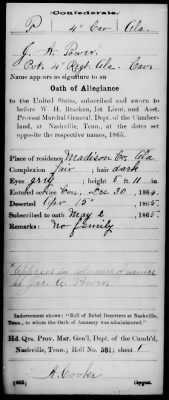 Confederate.
P 4" Cav Ala.
J. H. Power.
Pvt. 4" Regt. Ala. Cavs
Name appears as signature to an
Oath of Allegiance
to the United States, subscribed and sworn to
before W. H. Bracken, 1st Lieut. and Asst.
Provost Marshal General, Dep't. of the Cumber-
land, at Nashville, Tenn., at the dates set
opposite the respective names, 1865.
Place of residence Madison Co. Ala
Complexion fair ; hair dark
Eyes grey ; height 5 ft. 11 in.
Entered service Con. Dec 30 , 1864.
Deserted Apr 15" , 1865.
Subscribed to oath May 2 , 1865.
Remarks: No family
Appears in column of names
as Jas. H. Power
Indorsement shows: "Roll of Rebel Deserters at Nashville,
Tenn., to whom the Oath of Amnesty was administered."
Hd. Qrs. Prov. Mar. Gen'l, Dept. of the Cumb'd,
Nashville, Tenn.; Roll No. 581; sheet 1
H. Cooke
Copyist.